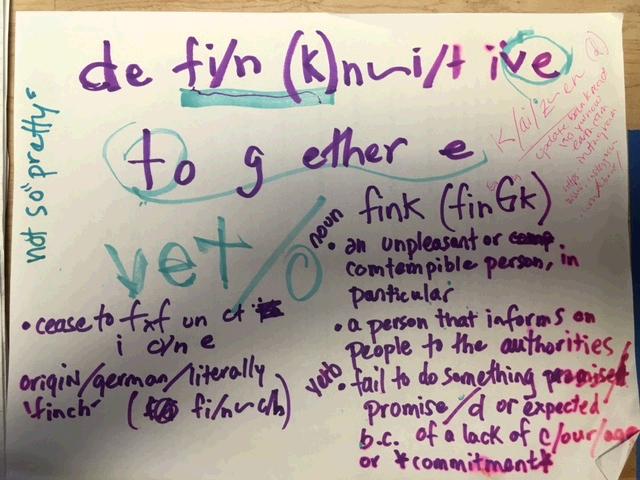 de fi/n (k)n~i/t ive
to g ether e
not so "pretty"
vet/o
noun fink (finGk)
• an unpleasant or comp.
comtempible person, in
particular
• a person that informs on
people to the authorities/
verb • fail to do something promised
promise/d or expected
b.c. of a lack of c/our/age
or *commitment*
• cease to fxf un ct
i o/n e
origin/german/literally
'finch' ( fi/n~c/h)
k/ai/z/en
update